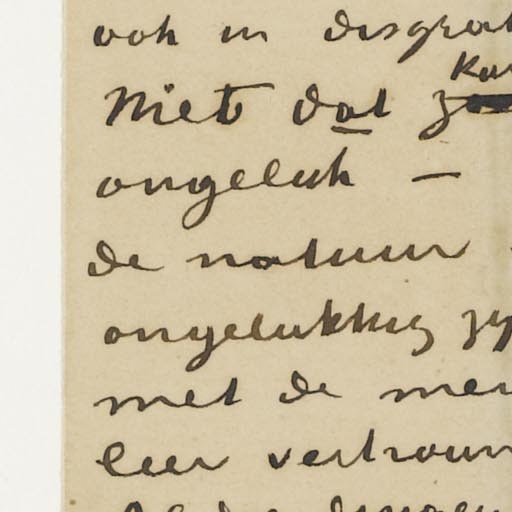 ook in disgra
Niet dat
ongeluk —
de natuur
ongelukkig zy
met de men
leer vertrouw